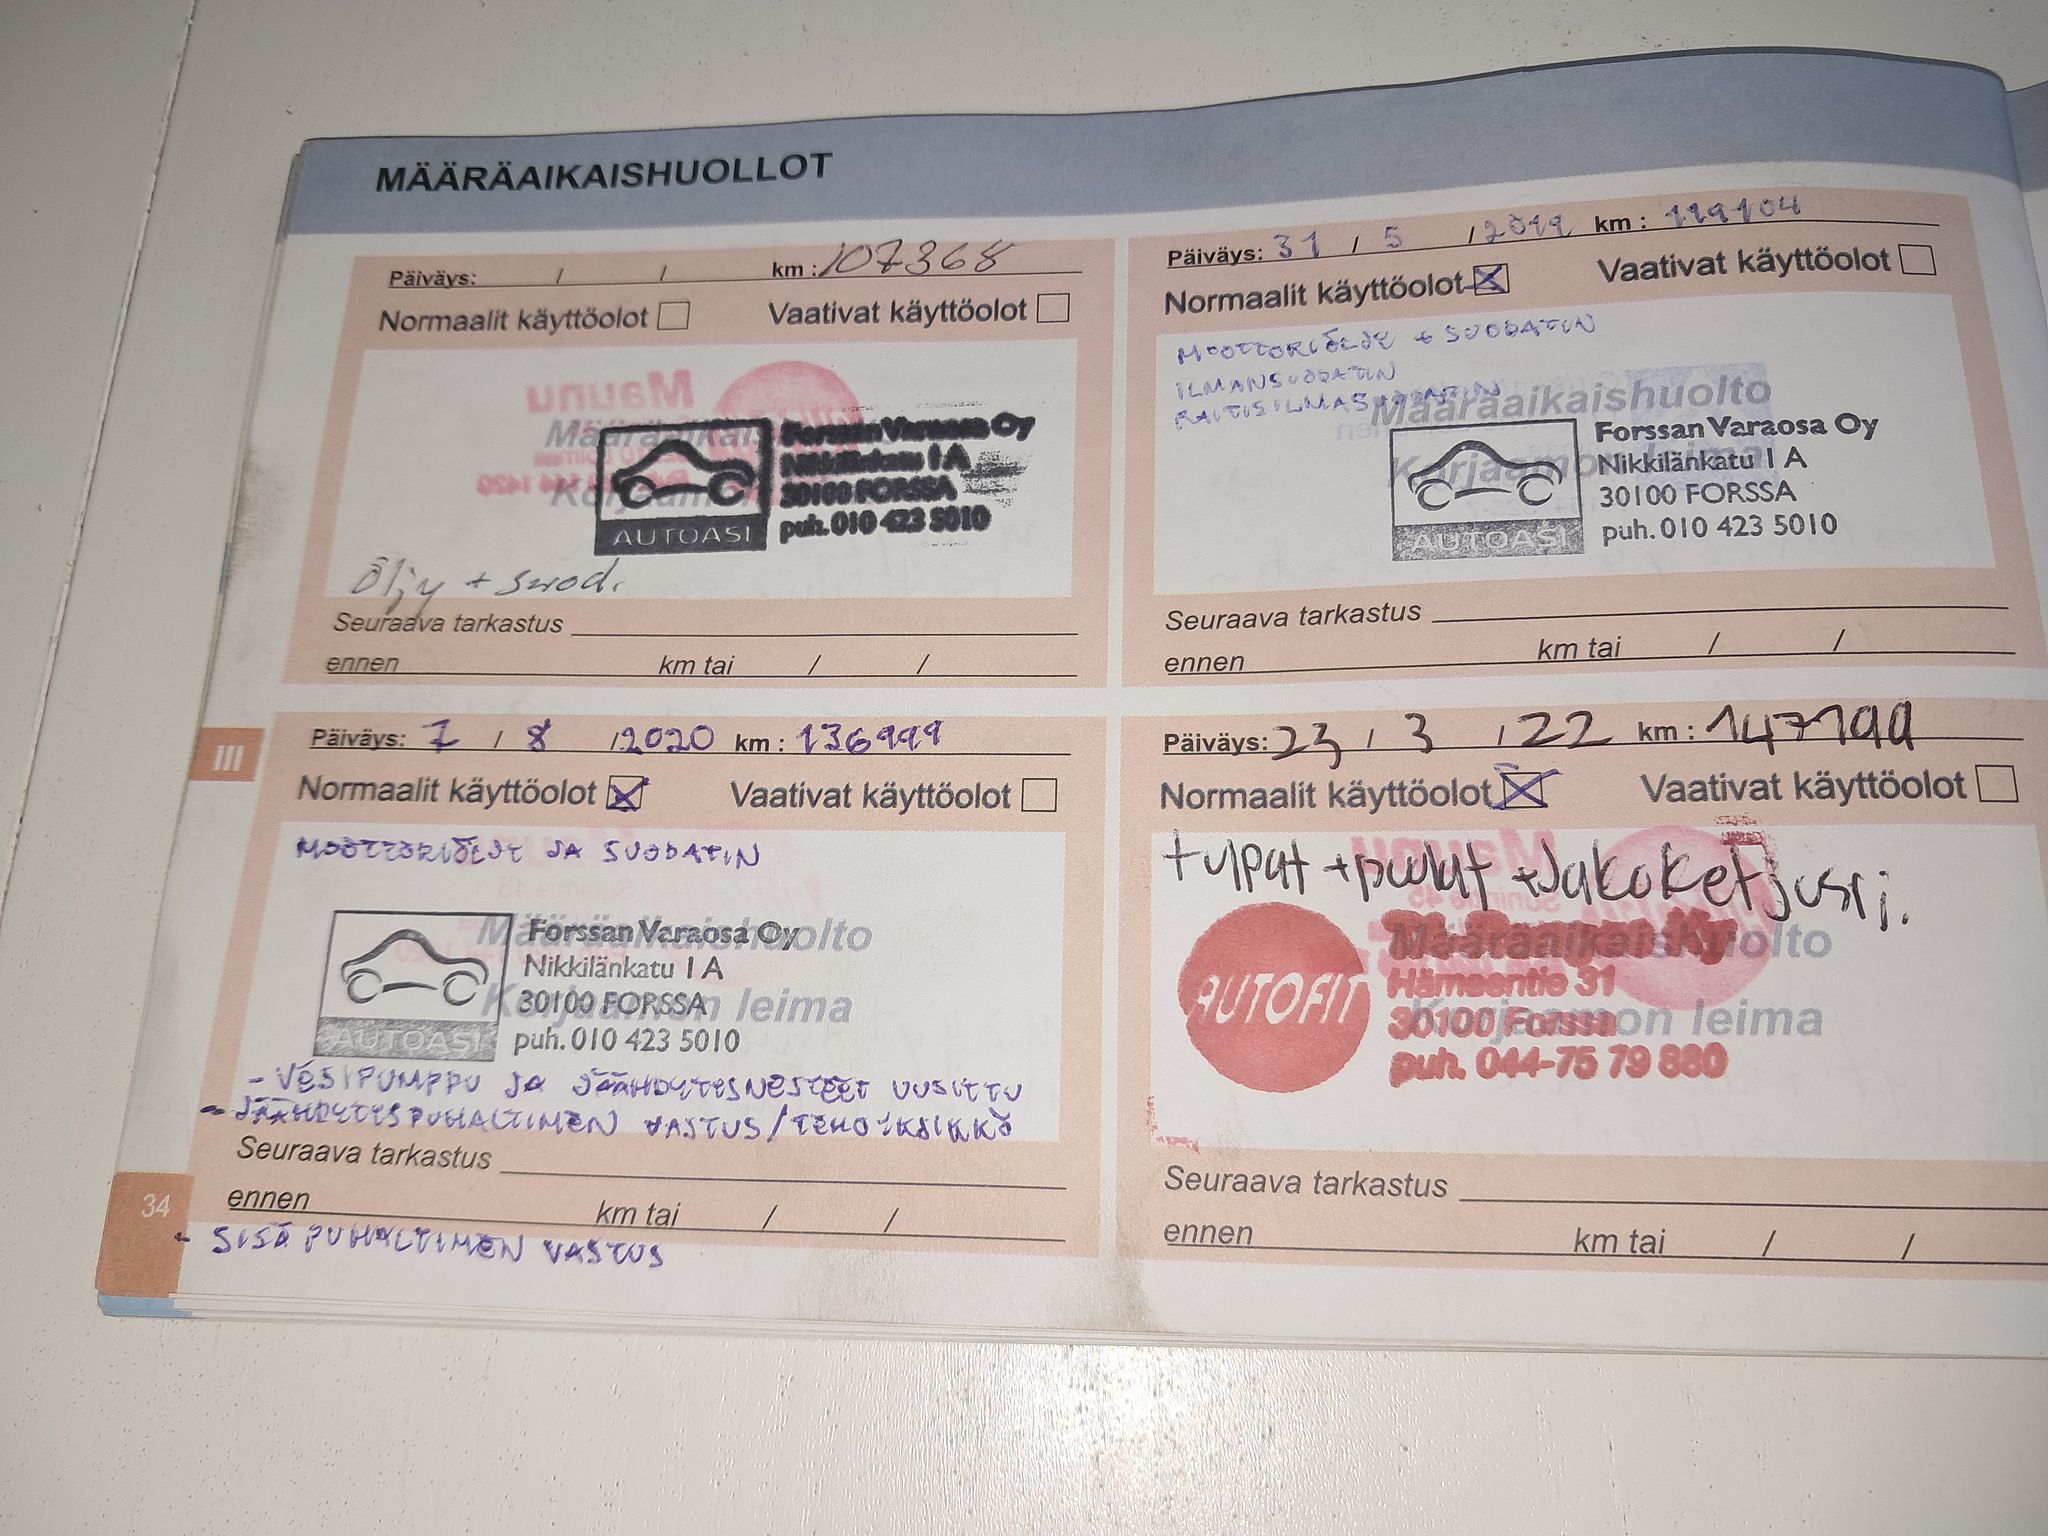 MÄÄRÄAIKAISHUOLLOT
Päiväys: / / km : 107368
Normaalit käyttöolot Vaativat käyttöolot
Maunu
Forssan Varaosa Oy
Nikkilänkatu 1 A
30100 FORSSA
puh. 010 423 5010
AUTOASI
Öljy + suod.
Seuraava tarkastus
ennen km tai / /
Päiväys: 31 / 5 / 2019 km : 119104
Normaalit käyttöolot Vaativat käyttöolot
MOOTTORIÖLJY + SUODATIN
ILMANSUODATIN
RAITISILMASUODATIN
Määräaikaishuolto
Korjaamon leima
Forssan Varaosa Oy
Nikkilänkatu 1 A
30100 FORSSA
puh. 010 423 5010
AUTOASI
Seuraava tarkastus
ennen km tai / /
III
Päiväys: 7 / 8 / 2020 km : 136999
Normaalit käyttöolot Vaativat käyttöolot
MOOTTORIÖLJY JA SUODATIN
Määräaikaishuolto
Korjaamon leima
Forssan Varaosa Oy
Nikkilänkatu 1 A
30100 FORSSA
puh. 010 423 5010
AUTOASI
- VESIPUMPPU JA JÄÄHDYTYSNESTEET UUSITTU
- JÄÄHDYTYSPUHALTIMEN VASTUS/TEHOYKSIKKÖ
Seuraava tarkastus
ennen km tai / /
- SISÄPUHALTIMEN VASTUS
34
Päiväys: 23 / 3 / 22 km : 147199
Normaalit käyttöolot Vaativat käyttöolot
+ulpat +puolat +Jakoketjusrj.
Määräaikaishuolto
Korjaamon leima
AUTOFIT
Hämeentie 31
30100 Forssa
puh. 044-75 79 880
Seuraava tarkastus
ennen km tai / /